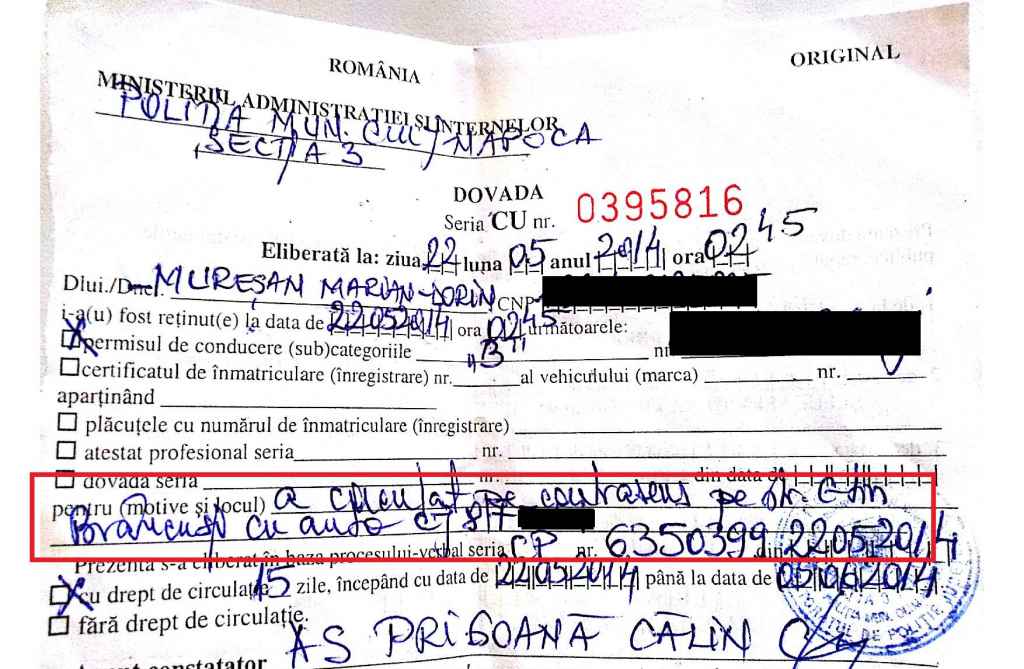 ROMÂNIA
ORIGINAL
MINISTERUL ADMINISTRAȚIEI ȘI INTERNELOR
POLIȚIA MUN. CLUJ NAPOCA
SECȚIA 3
DOVADA
Seria CU nr. 0395816
Eliberată la: ziua 22 luna 05 anul 2014 ora 02 45
Dlui./Dnei. MUREȘAN MARIAN-DORIN CNP
i-a(u) fost reținut(e) la data de 22052014 ora 02 45 următoarele:
permisul de conducere (sub)categoriile "B" nr
certificatul de înmatriculare (înregistrare) nr. al vehiculului (marca) nr.
aparținând
plăcuțele cu numărul de înmatriculare (înregistrare)
atestat profesional seria nr.
dovada seria nr. din data de
pentru (motive și locul) a circulat pe contrasens pe str.
Brâncuși cu auto CJ
Prezenta s-a eliberat în baza procesului-verbal seria CP nr. 6350399 din 22052014
cu drept de circulație 15 zile, începând cu data de 22052014 până la data de 05062014
fără drept de circulație.
AS PRIGOANĂ CĂLIN
Agent constatator